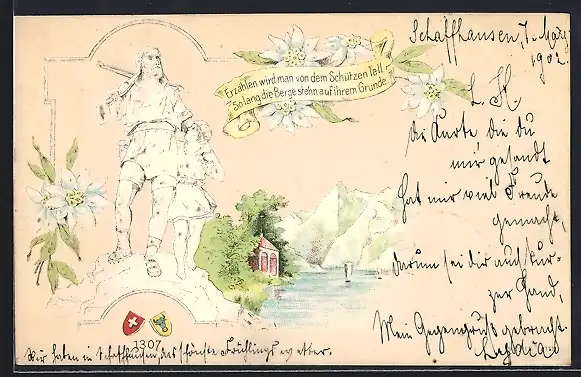 Schaffhausen, 7. März
1902.
Erzählen wird man von dem Schützen Tell
So lang die Berge stehn auf ihrem Grunde.
L. H
die Karte die du
mir gesandt
hat mir viel Freude
gemacht,
darum sei dir auch kur-
zer Hand,
Mein Gegengruß gebracht.
1307.
Wir haben in Schaffhausen das schönste Frühlingswetter.